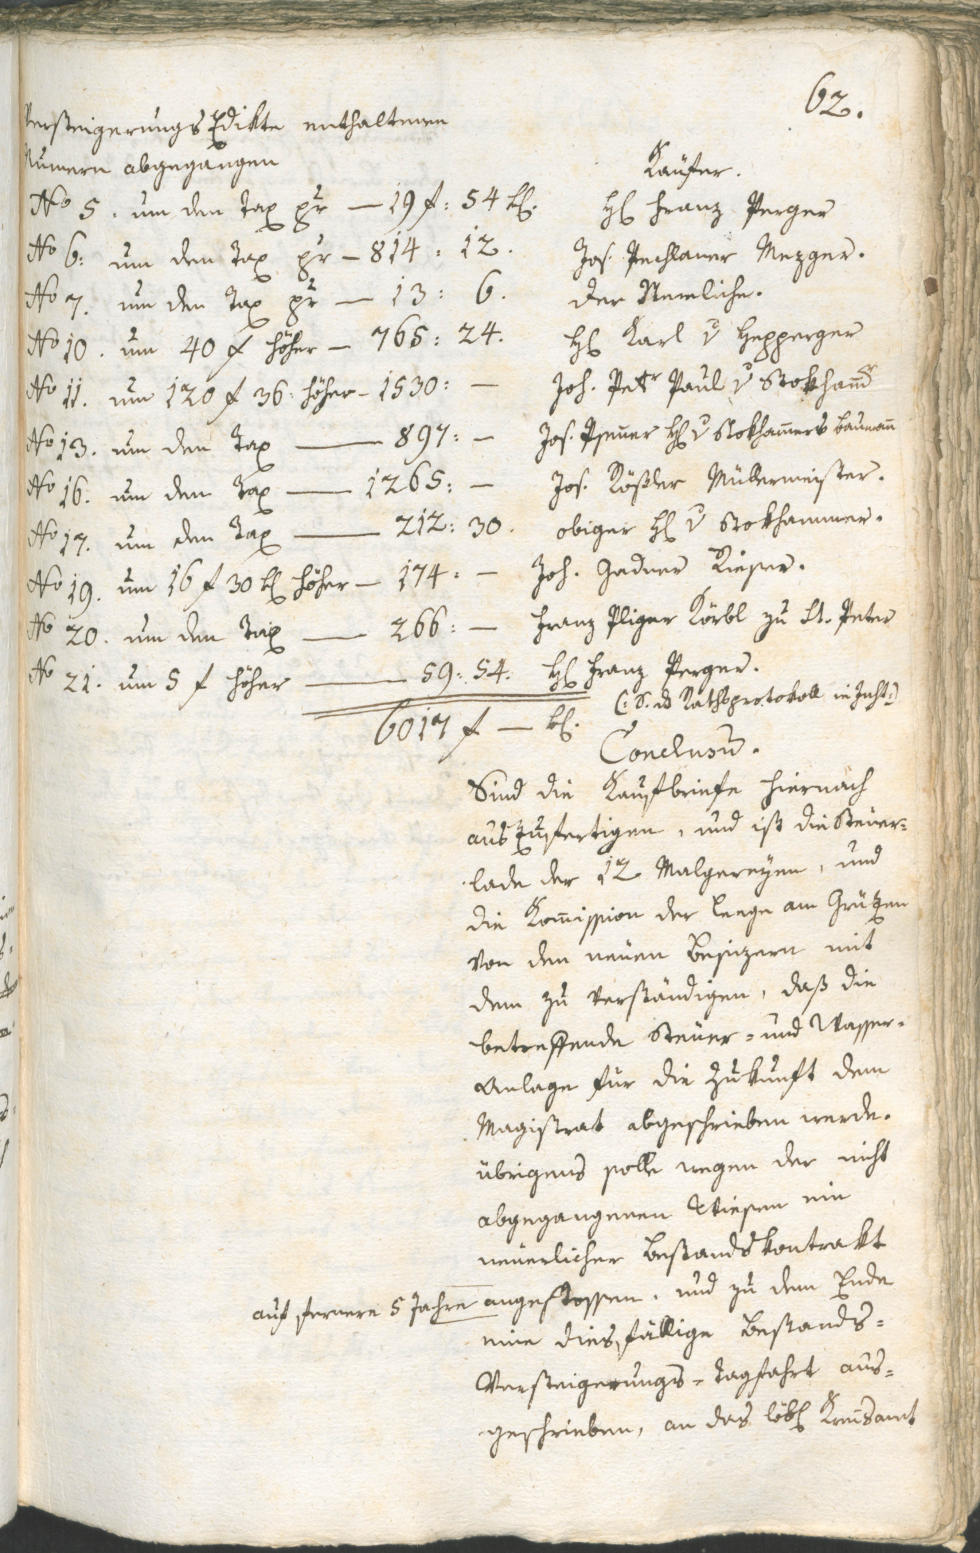 62.
Versteigerungs Edikte enthaltenen
Numern abgegangen
Käufer.
No 5. um den Tax pr — 19 f: 54 kr. H Franz Perger
No 6: um den Tax pr — 814: 12. Jos. Pechlaner Mezger.
No 7. um den Tax pr — 13: 6. der Nemliche.
No 10. um 40 f höher — 765: 24. H Karl v Hepperger
No 11. um 120 f 36. höher — 1530: — Joh. Petr Paul v Stokham̄er
No 13. um den Tax — 897: — Jos. H v Stokhammers Baumann
No 16. um den Tax — 1265: — Jos. Rößler Müllermeister.
No 17. um den Tax — 212: 30. obiger H v Stokhammer.
No 19. um 16 f 30 k höher — 174: — Joh. Gadner Rieser.
No 20. um den Tax — 266: — Franz Pliger Körbl zu St. Peter
No 21. um 5 f höher — 59: 54. H Franz Perger.
6017 f — kr.
(: S. das Rathsprotokoll
Conclusum.
Sind die Kaufbriefe hiernach
auszufertigen, und ist die Steuer=
lade der 12 Malgereyen, und
die Kom̄ission der Leege am Grützen
von den neuen Besizern mit
dem zu verständigen, daß die
betreffende Steuer= und Wasser=
Anlage für die Zukunft dem
Magistrat abgeschrieben werde.
übrigens solle wegen der nicht
abgegangenen Wiesen ein
neuerlicher Bestandskontrakt
auf fernere 5 Jahre angestossen, und zu dem Ende
eine diesfällige Bestands=
Versteigerungs=Tagfahrt aus=
geschrieben, an das löbl Kreisamt